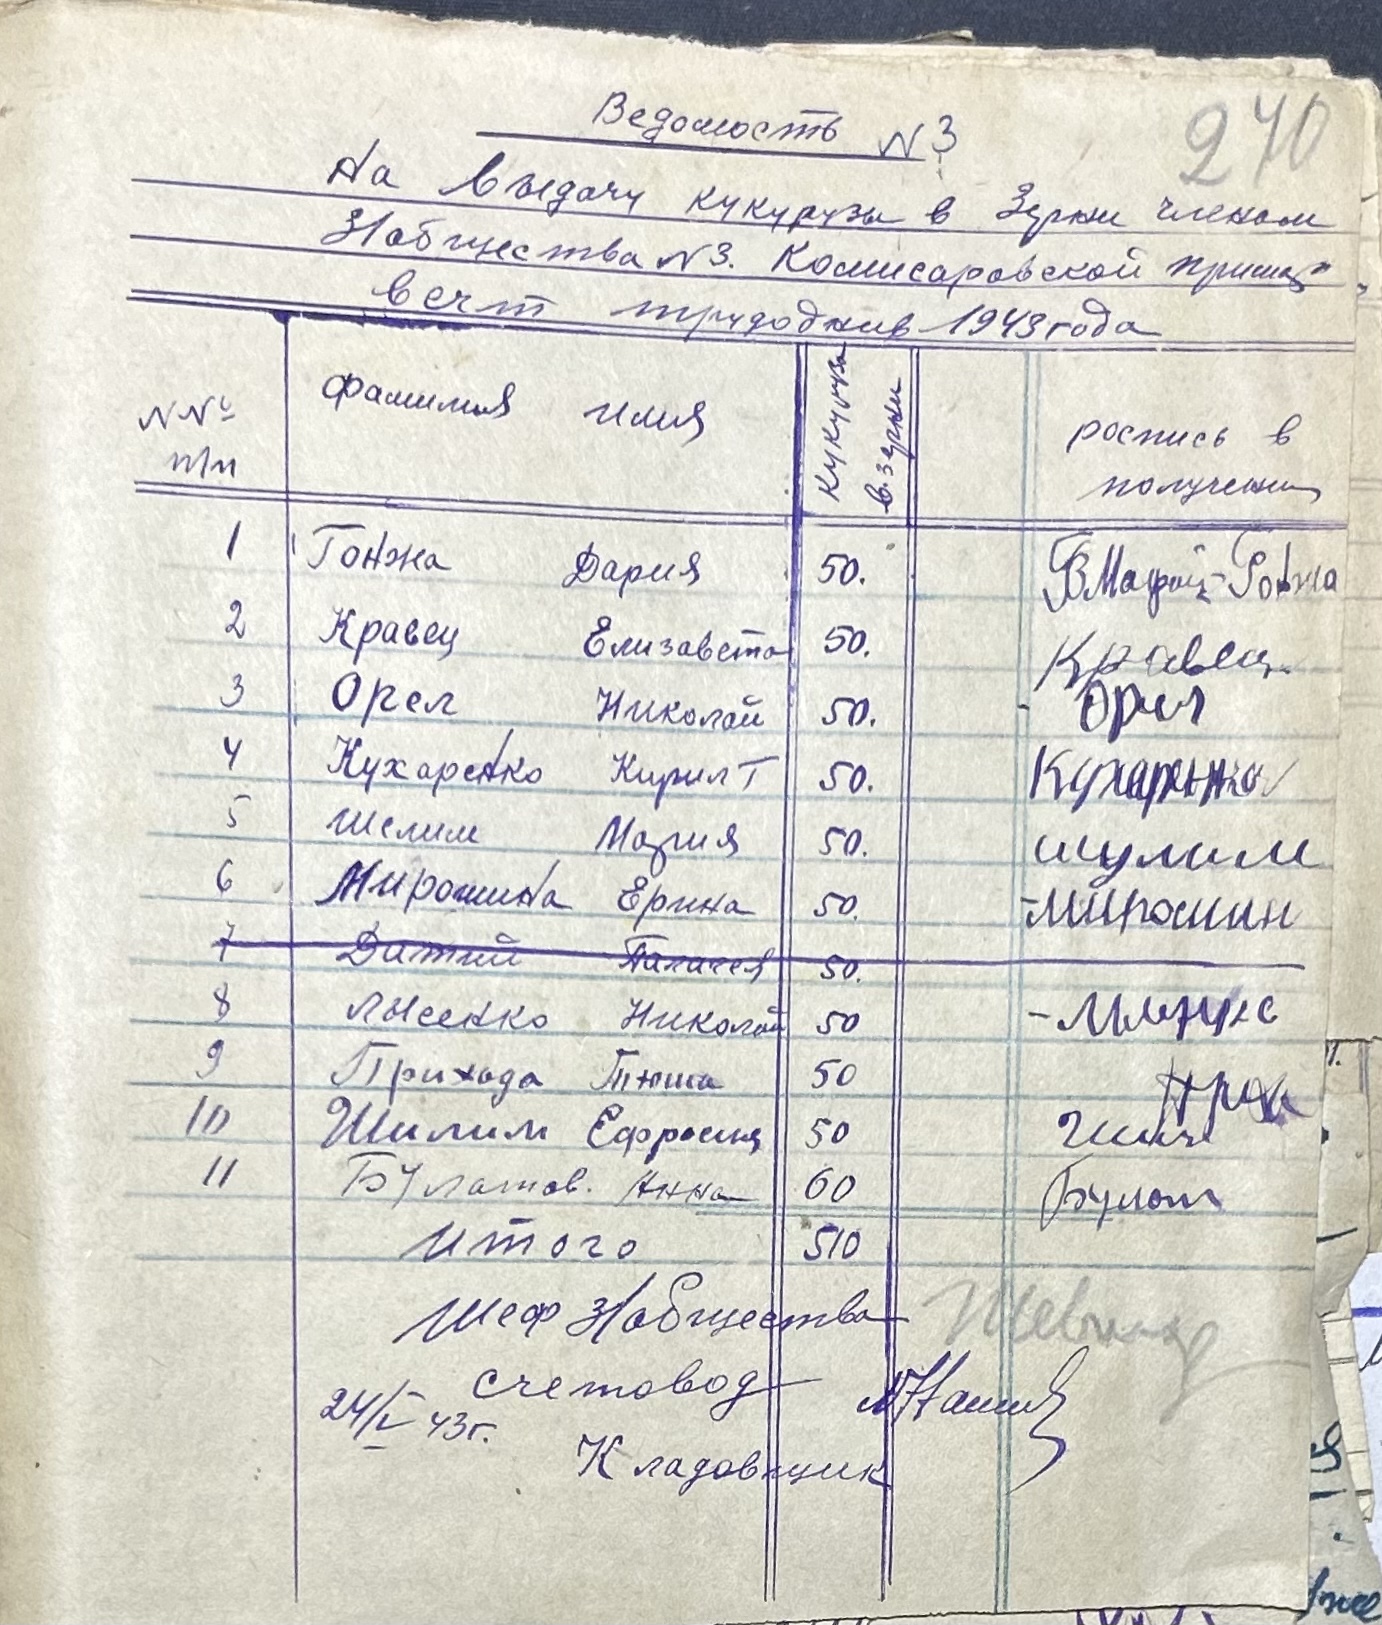 270
Ведомость N 3
На выдачу кукурузы в Зерни членам
Изобщества N3. Комисаровской примар
в счт трудоднив 1943 года
NNº п/п фамилия имя кукуруза в зерни роспись в получении
1 Гонжа Дария 50. Гонжа
2 Кравец Елизавета 50. Кравец
3 Орел Николай 50. Орел
4 Кухаренко Кирил Т 50. Кухаренко
5 Шелим Мария 50. шулим
6 Мирошина Ерина 50. Мирошин
7 Датий Палагея 50.
8 Лысенко Николай 50
9 Прихода Тюша 50 Прих
10 Шилим Ефросиня 50
11 Булатов. Анна 60 Булат
Итого 510
Шеф Изобщества
счетовод
24/I 43г.
Кладовщик